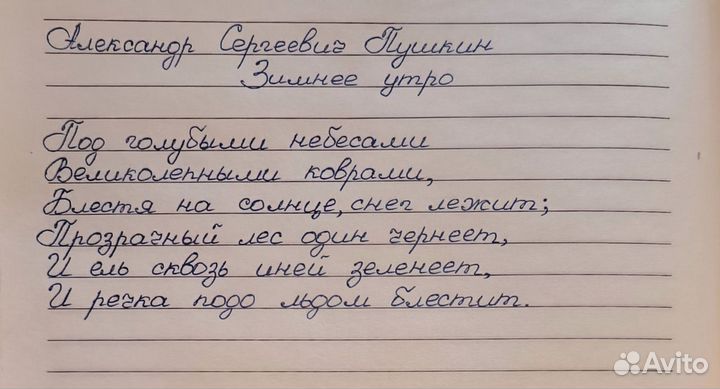 Александр Сергеевич Пушкин
Зимнее утро
Под голубыми небесами
Великолепными коврами,
Блестя на солнце, снег лежит;
Прозрачный лес один чернеет,
И ель сквозь иней зеленеет,
И речка подо льдом блестит.
Avito